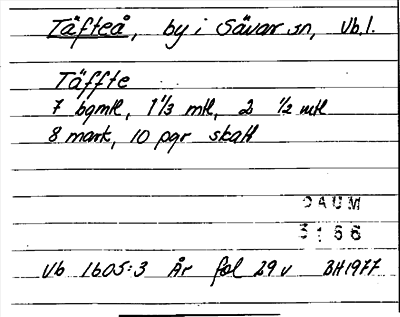 Täfteå, by i Sävar sn, Vb. l.
Täffte
7 bgmtl, 1 1/3 mtl, 2 1/2 mtl
8 mark, 10 pgr skatt
DAUM
3166
Vb 1605:3 År fol 29 v BH 1977